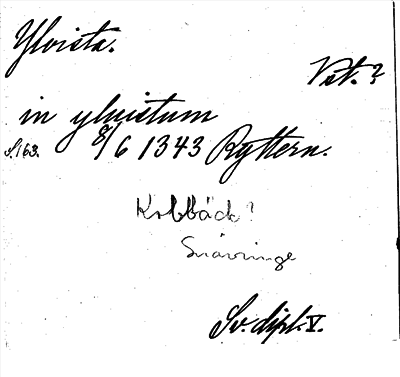 Ylvista.
Vst. ?
in yluistum
s. 163. 8/6 1343 Ryttern.
Kolbäck?
Snävringe
Sv. dipl. V.